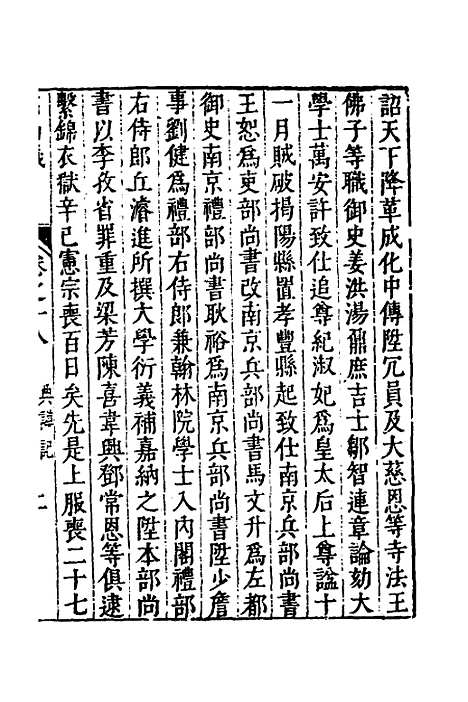 詔天下降革成化中傳陞冗員及大慈恩等寺法王
佛子等職御史姜洪湯鼐庶吉士鄒智連章論劾大
學士萬安許致仕追尊紀淑妃爲皇太后上尊諡十
一月賊破揭陽縣置孝豐縣起致仕南京兵部尚書
王恕爲吏部尚書改南京兵部尚書馬文升爲左都
御史南京禮部尚書耿裕爲南京兵部尚書陞少詹
事劉健爲禮部右侍郎兼翰林院學士入內閣禮部
右侍郎丘濬進所撰大學衍義補嘉納之陞本部尚
書以李孜省罪重及梁芳陳喜韋興鄧常恩等俱逮
繫錦衣獄辛已憲宗喪百日矣先是上服喪二十七
卷之十八 典謨記 二